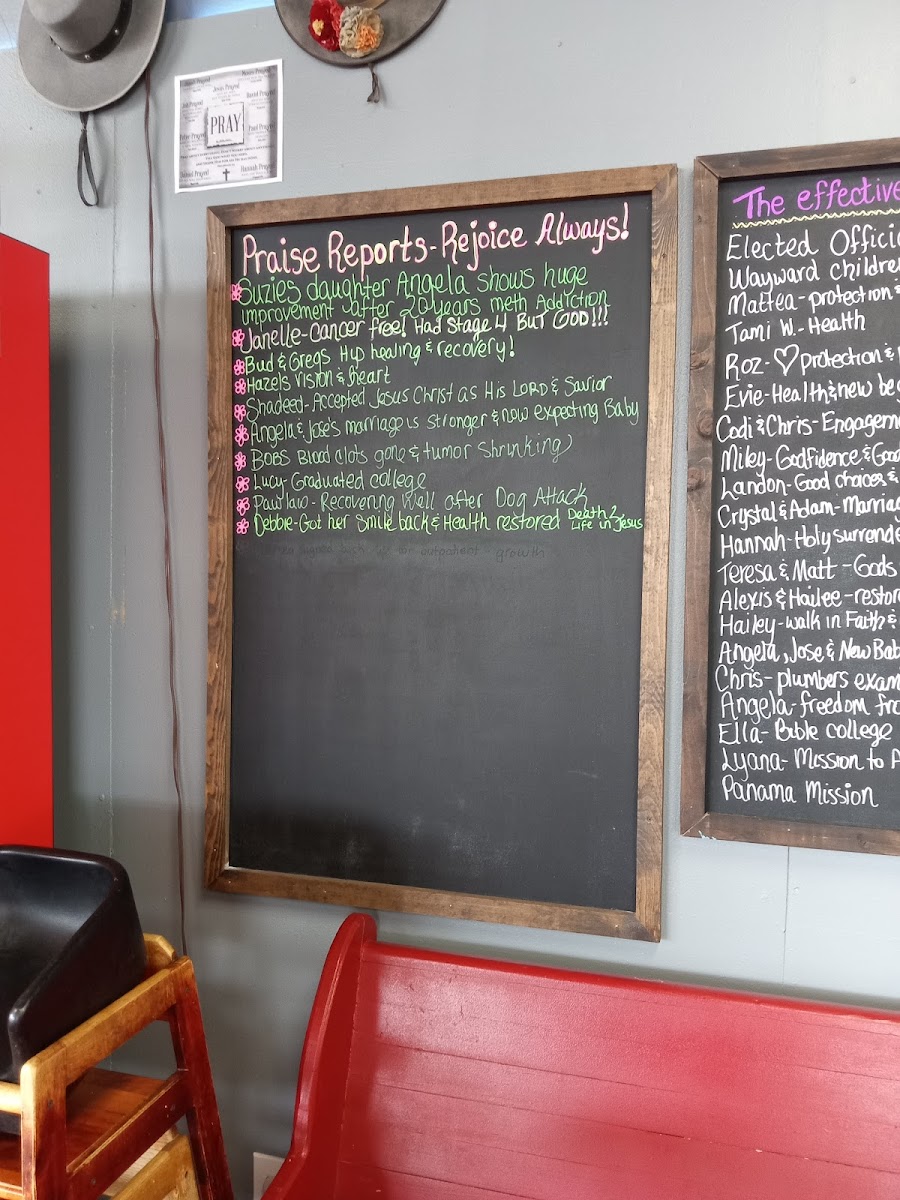 Moses Prayed
Jesus Prayed
David Prayed
Job Prayed
PRAY
Peter Prayed
Paul Prayed
Daniel Prayed
Hannah Prayed
Praise Reports - Rejoice Always!
Suzies daughter Angela shows huge
improvement after 20 years meth Addiction
Janelle - Cancer free! Had Stage 4 BUT GOD!!!
Bud & Gregs Hip healing & recovery!
Hazels Vision & heart
Shadeed - Accepted Jesus Christ as His LORD & Savior
Angela & Jose's marriage is stronger & now expecting Baby
BOBS Blood clots gone & tumor Shrinking
Lucy Graduated college
Paw law - Recovering Well after Dog Attack
Debbie - Got her Smile back & Health restored Death 2
Life in Jesus
outpatient - growth
The effective
Elected Offici
Wayward children
Mattea - protection &
Tami W. - Health
Roz - ♡ protection &
Evie - Health & new be
Codi & Chris - Engagem
Miley - Godfidence & Goo
Landon - Good choices &
Crystal & Adam - Marria
Hannah - Holy surrende
Teresa & Matt - Gods
Alexis & Hailee - restor
Hailey - walk in Faith &
Angela, Jose & New Bab
Chris - plumbers exam
Angela - freedom fro
Ella - Bible college
Lyana - Mission to A
Panama Mission